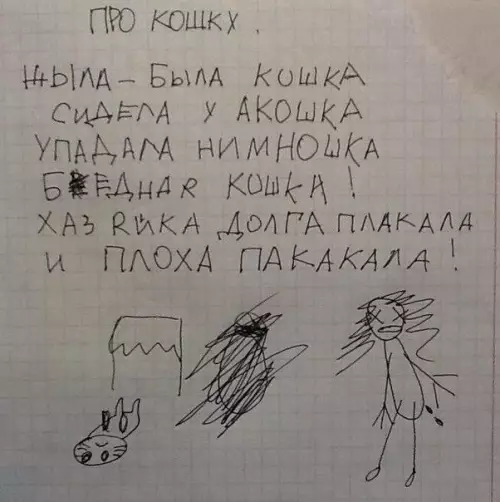 ПРО КОШКУ.
ЖЫЛА – БЫЛА КОШКА
СИДЕЛА У АКОШКА
УПАДАЛА НИМНОШКА
БЕДНАЯ КОШКА!
ХАЗЯЙКА ДОЛГА ПЛАКАЛА
И ПЛОХА ПАКАКАЛА!